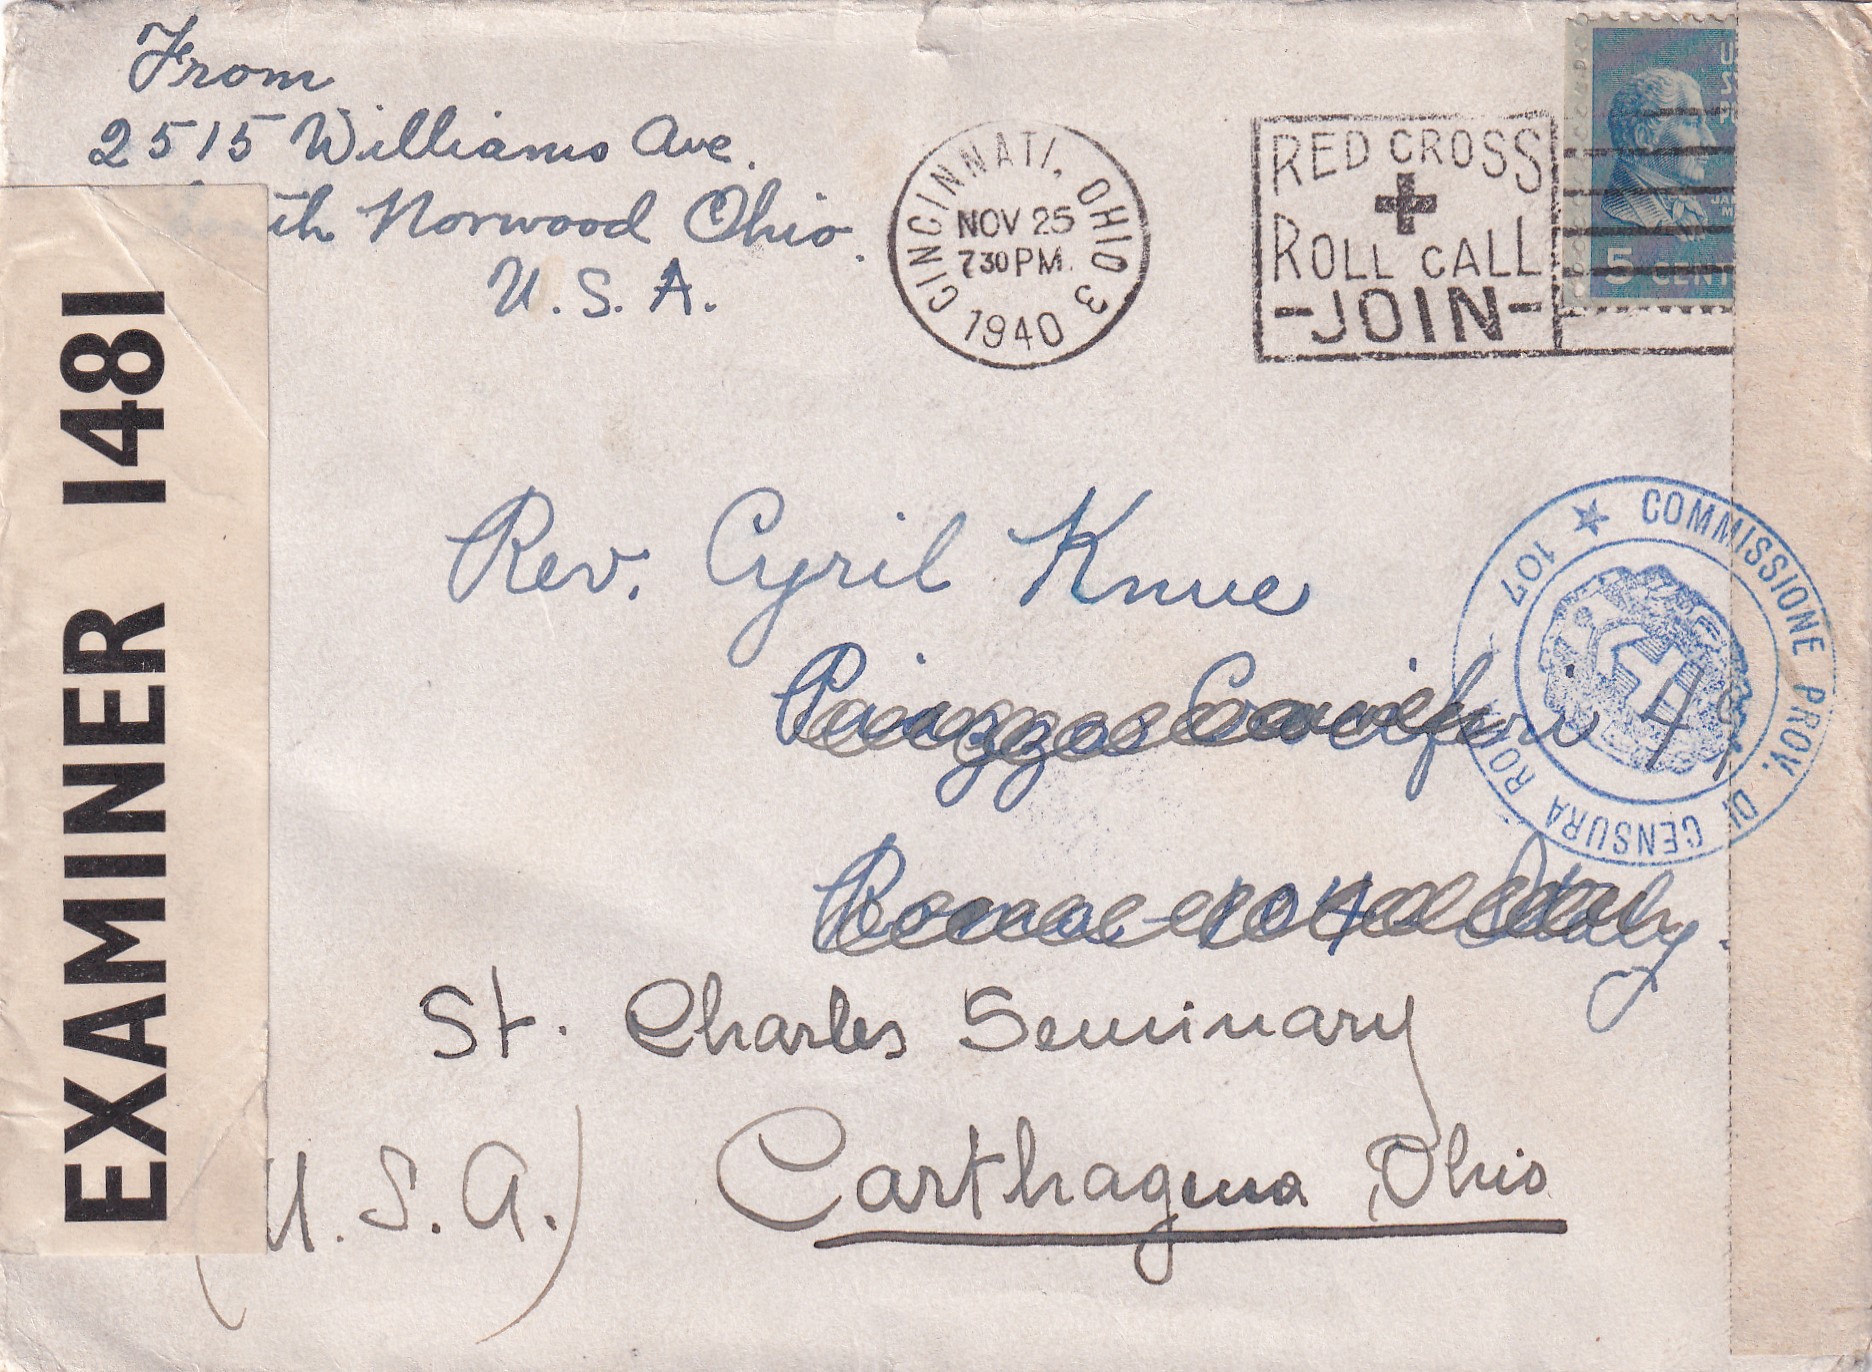 From
2515 Williams Ave.
th Norwood Ohio.
U.S.A.
CINCINNATI, OHIO 3
NOV 25
7 30 PM
1940
RED CROSS
ROLL CALL
-JOIN-
U
S
5 CENT
EXAMINER 1481
Rev. Cyril Knue
COMMISSIONE PROV. DI CENSURA RO
107
Rome - 104 Italy.
St. Charles Seminary
Carthagena, Ohio
U.S.A.)